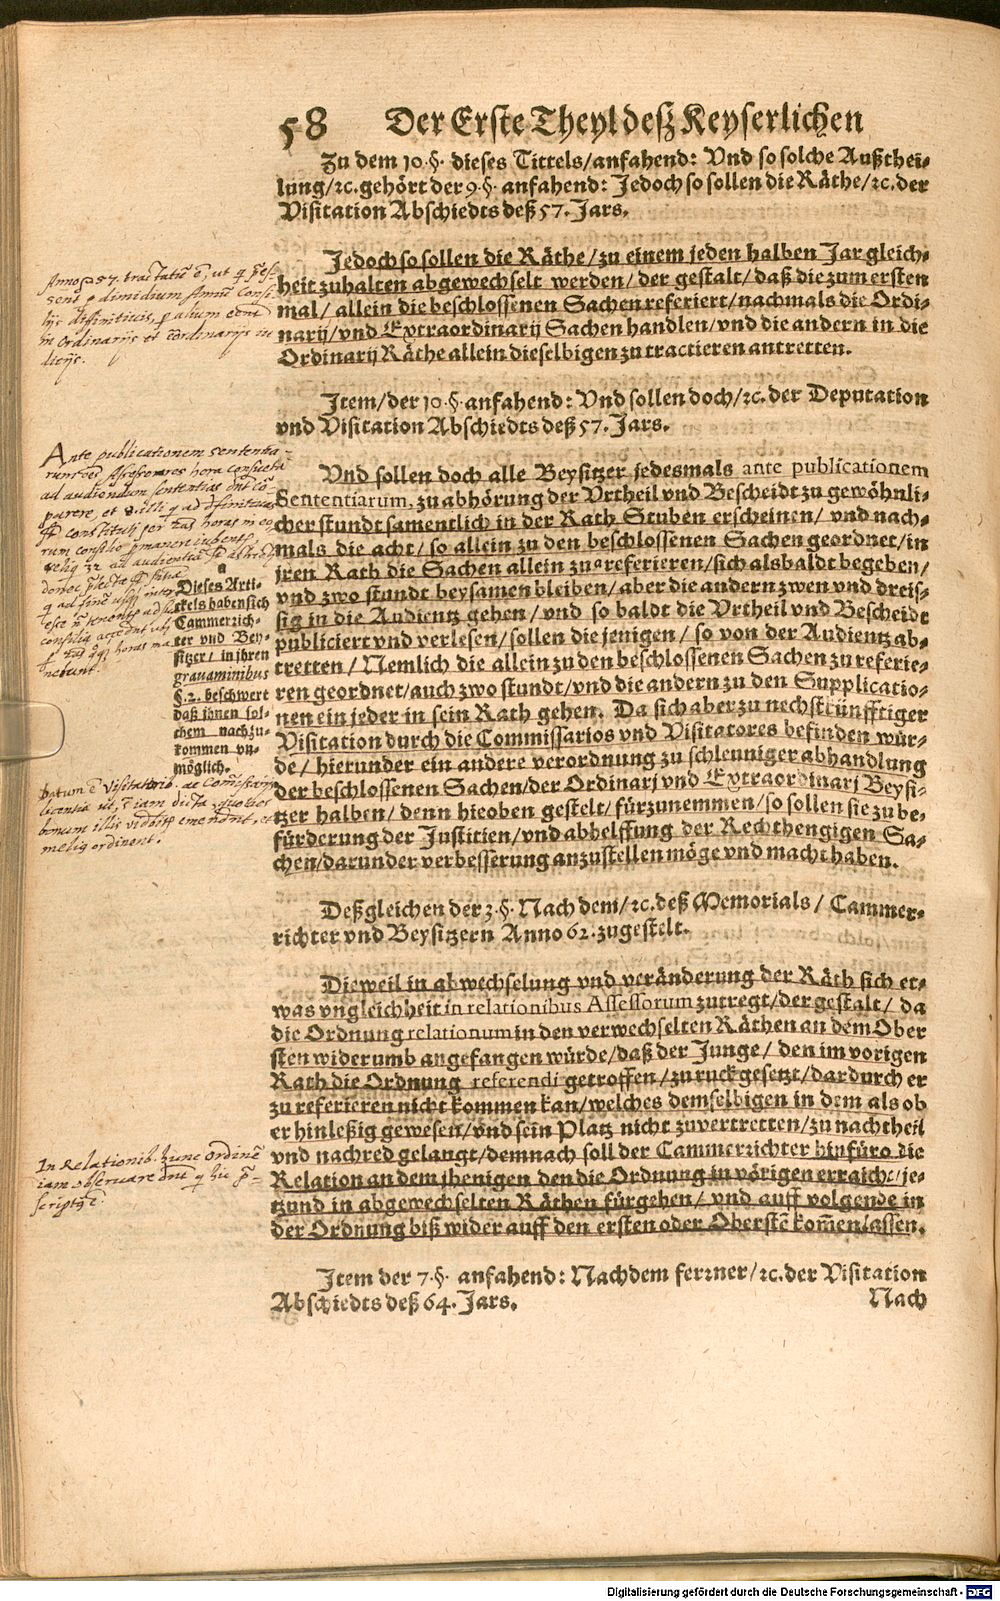 58 Der Erste Theyl deß Keyserlichen
Zu dem 10.§. dieses Tittels/anfahend: Vnd so solche Außthei-
lung/ꝛc. gehört der 9.§. anfahend: Jedoch so sollen die Räthe/ꝛc. der
Visitation Abschiedts deß 57. Jars.
Jedoch so sollen die Räthe/zu einem jeden halben Jar gleich-
heit zuhalten abgewechselt werden/ der gestalt/ daß die zum ersten
mal/ allein die beschlossenen Sachen referiert/nachmals die Ordi-
narij/vnd Extraordinarij Sachen handlen/vnd die andern in die
Ordinarij Räthe allein dieselbigen zu tractieren antretten.
Anno 57. ut
dimidium
diffinitivis, alium
in ordinarijs et ordinarijs
Jtem/der 10.§. anfahend: Vnd sollen doch/ꝛc. der Deputation
vnd Visitation Abschiedts deß 57. Jars.
Vnd sollen doch alle Beysitzer jedesmals ante publicationem
Sententiarum, zu abhörung der Vrtheil vnd Bescheidt zu gewöhnli-
cher stundt samentlich in der Rath Stuben erscheinen/ vnd nach-
mals die acht/ so allein zu den beschlossenen Sachen geordnet/in
jren Rath die Sachen allein zu referieren/sich alsbaldt begeben/
vnd zwo stundt beysamen bleiben/aber die andern zwen vnd dreis-
sig in die Audientz gehen/ vnd so baldt die Vrtheil vnd Bescheidt
publiciert vnd verlesen/sollen die jenigen/ so von der Audientz ab-
tretten/ Nemlich die allein zu den beschlossenen Sachen zu referie-
ren geordnet/auch zwo stundt/vnd die andern zu den Supplicatio-
nen ein jeder in sein Rath gehen. Da sich aber zu nechstkünfftiger
Visitation durch die Commissarios vnd Visitatores befinden wür-
de/ hierunder ein andere verordnung zu schleuniger abhandlung
der beschlossenen Sachen/der Ordinarj vnd Extraordinarj Beysi-
tzer halben/ denn hieoben gestelt/ fürzunemmen/so sollen sie zu be-
fürderung der Justitien/vnd abhelffung der Rechthengigen Sa-
chen/darunder verbesserung anzustellen möge vnd macht haben.
Ante publicationem sententia-
rum Assessores hora consueta
ad audiendum sententias
et
constituti horas
ad audientiam
a
Dieses Arti-
ckels haben sich
Cammerrich-
ter vnd Bey-
sitzer/ in jhren
gravaminibus
§.2. beschwert
daß jhnen sol-
chem nachzu-
kommen vn-
möglich.
Datum Visitatorib. ac
licentia ut, iam dicta quoties
bonum illis et
ordinent.
Deßgleichen der 3.§. Nach dem/ꝛc. deß Memorials/ Cammer-
richter vnd Beysitzern Anno 62. zugestelt.
Dieweil in abwechselung vnd veränderung der Räth sich et-
was vngleichheit in relationibus Assessorum zutregt/der gestalt/ da
die Ordnung relationum in den verwechselten Räthen an dem Ober
sten widerumb angefangen würde/daß der Junge/ den im vorigen
Rath die Ordnung referendi getroffen/zu ruck gesetzt/dardurch er
zu referieren nicht kommen kan/welches demselbigen in dem als ob
er hinleßig gewesen/vnd sein Platz nicht zuvertretten/zu nachtheil
vnd nachred gelangt/demnach soll der Cammerrichter hinfüro die
Relation an dem jhenigen den die Ordnung in vörigen erraicht/je-
tzund in abgewechselten Räthen fürgehen/ vnd auff volgende in
der Ordnung biß wider auff den ersten oder Oberstē kom̄en lassen.
In Relationib. hunc ordinē
iam observare hic
Jtem der 7.§. anfahend: Nachdem ferrner/ꝛc. der Visitation
Abschiedts deß 64. Jars.
Nach
Digitalisierung gefördert durch die Deutsche Forschungsgemeinschaft - DFG